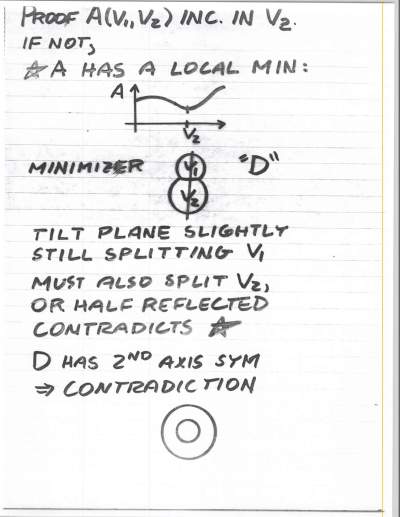 PROOF A(V₁,V₂) INC. IN V₂.
IF NOT,
☆ A HAS A LOCAL MIN:
A
V₂
MINIMIZER V₁ "D"
V₂
TILT PLANE SLIGHTLY
STILL SPLITTING V₁
MUST ALSO SPLIT V₂,
OR HALF REFLECTED
CONTRADICTS ☆
D HAS 2ND AXIS SYM
⇒ CONTRADICTION